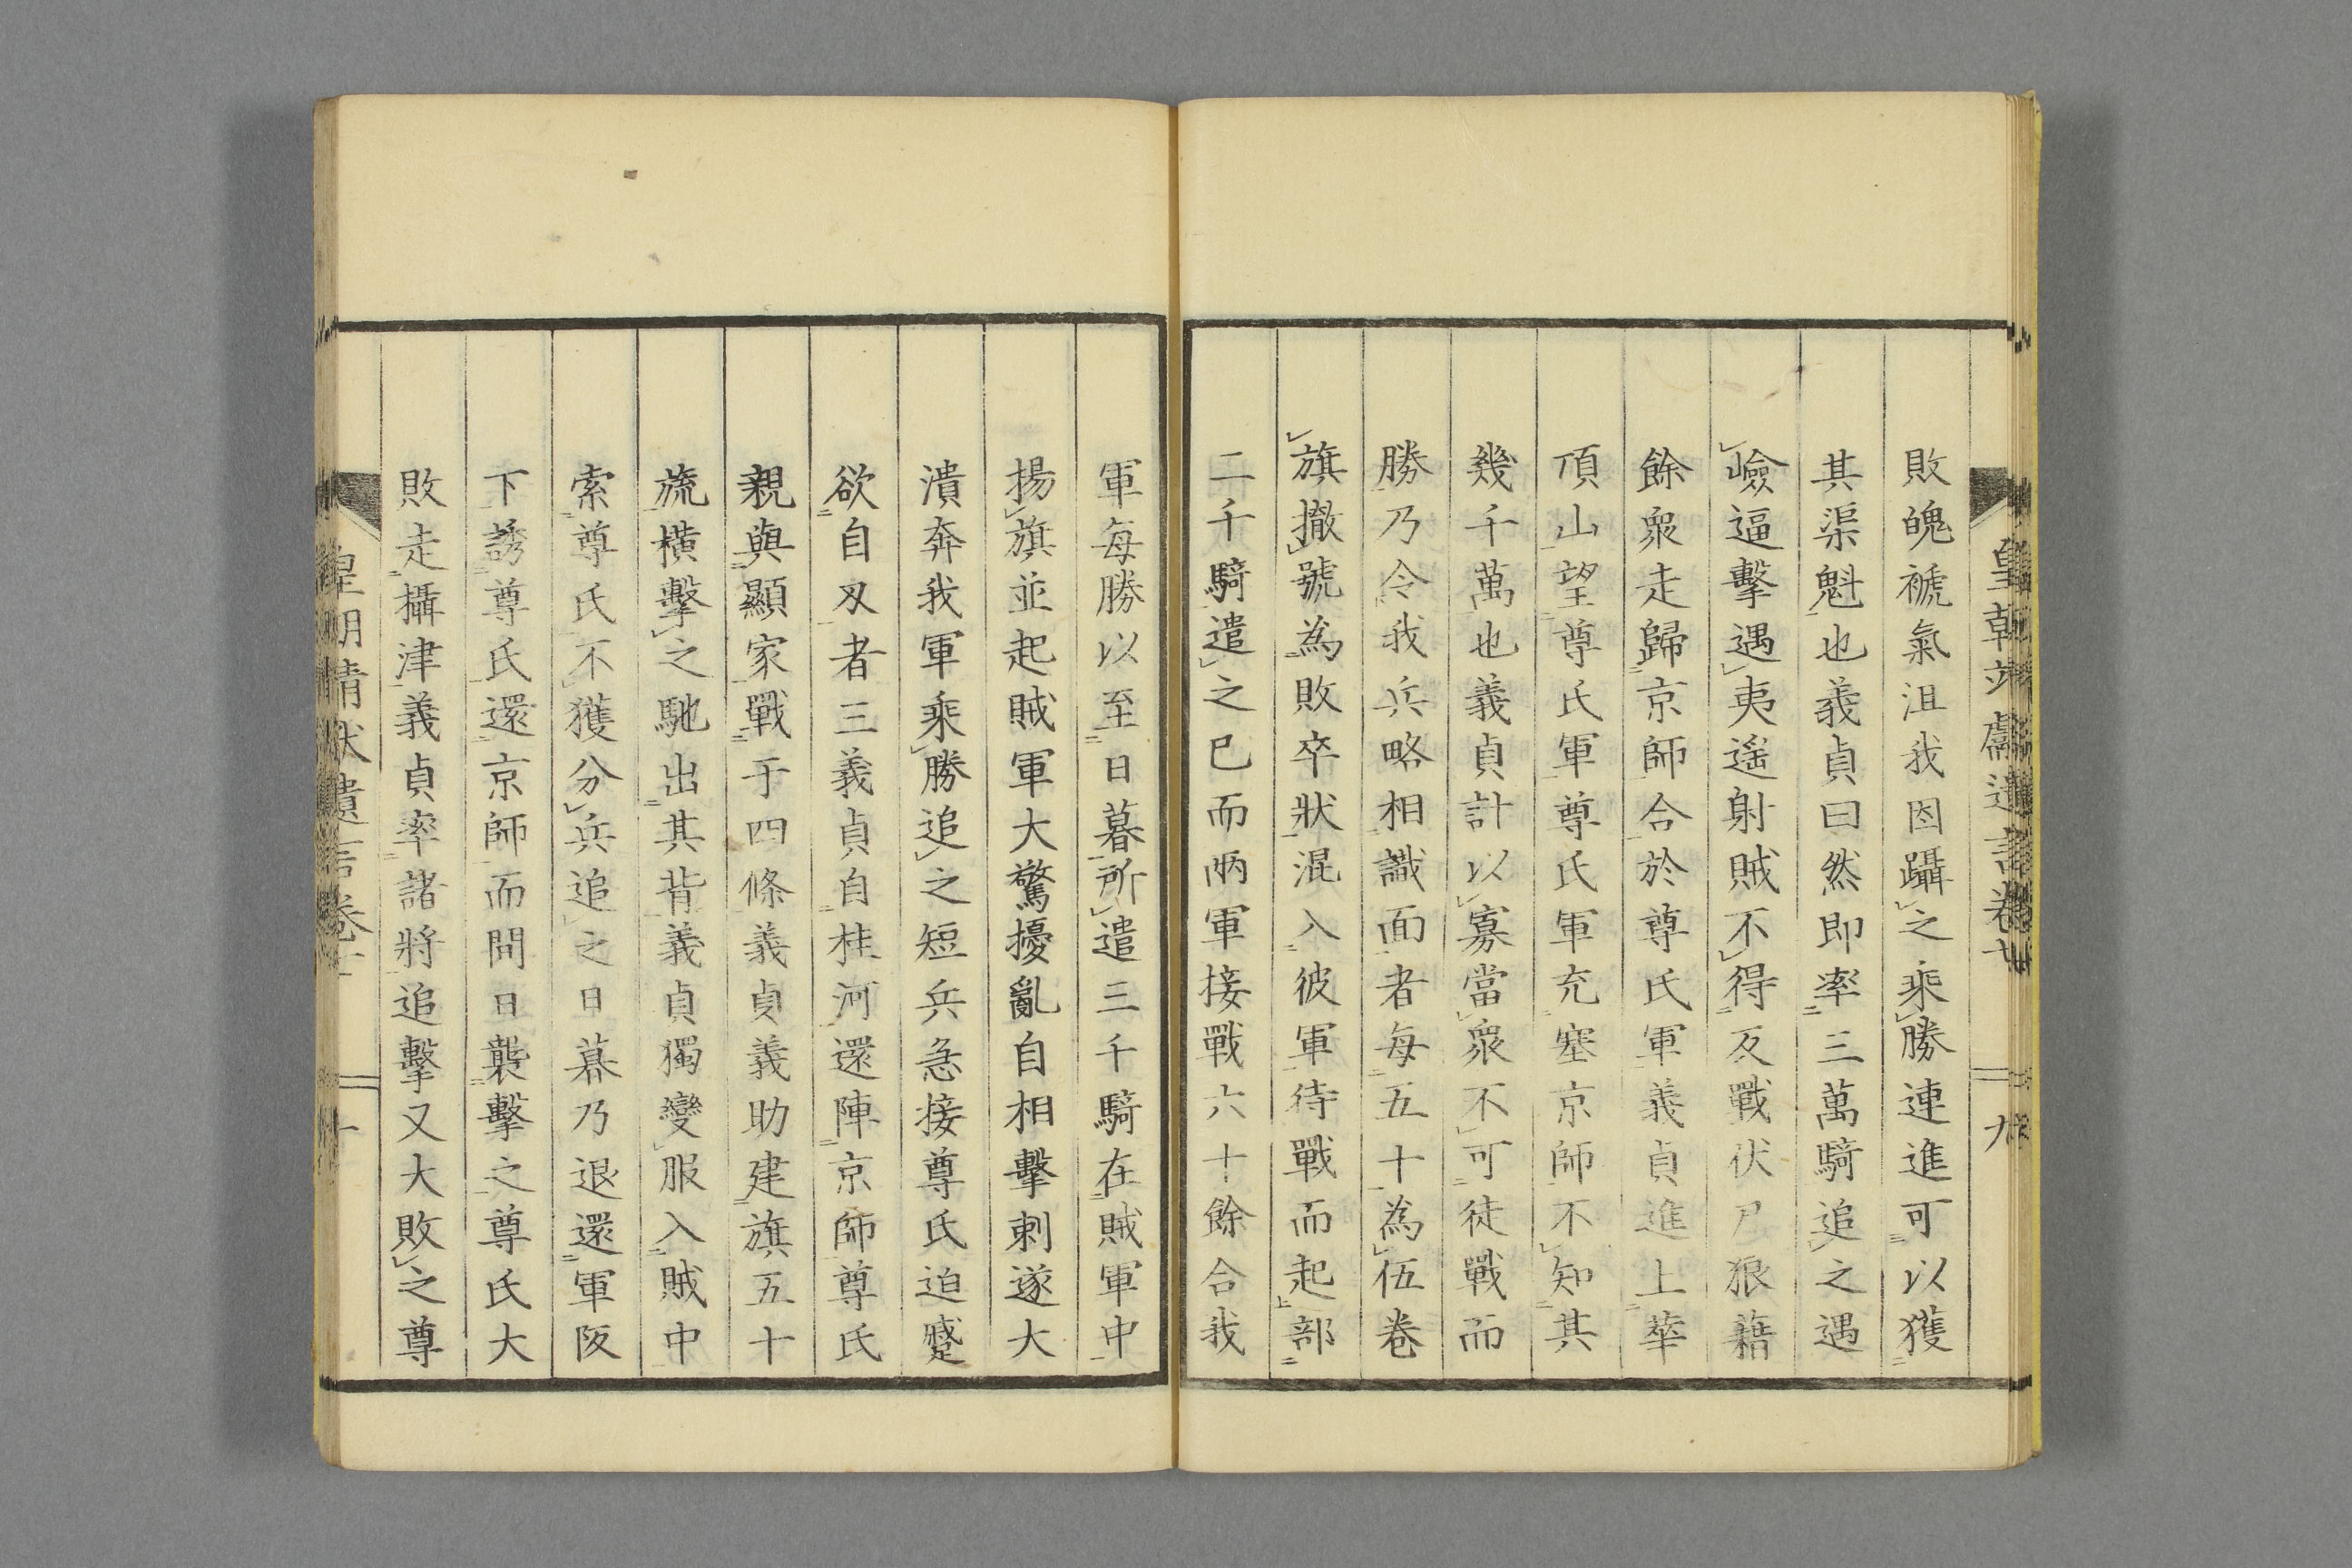 敗魄褫氣沮我因躡之乘勝連進可以獲
其渠魁也義貞曰然即率三萬騎追之遇
嶮逼擊遇夷遙射賊不得反戰伏尸狼藉
餘衆走歸京師合於尊氏軍義貞進上華
頂山望尊氏軍尊氏軍充塞京師不知其
幾千萬也義貞計以寡當衆不可徒戰而
勝乃令我兵略相識面者每五十為伍卷
旗撤號為敗卒狀混入彼軍待戰而起部
二千騎遣之已而兩軍接戰六十餘合我
軍每勝以至日暮所遣三千騎在賊軍中
揚旗並起賊軍大驚擾亂自相擊刺遂大
潰奔我軍乘勝追之短兵急接尊氏迫蹙
欲自刃者三義貞自桂河還陣京師尊氏
親與顯家戰于四條義貞義助建旗五十
旒橫擊之馳出其背義貞獨變服入賊中
索尊氏不獲分兵追之日暮乃退還軍阪
下誘尊氏還京師而間日襲擊之尊氏大
敗走攝津義貞率諸將追擊又大敗之尊